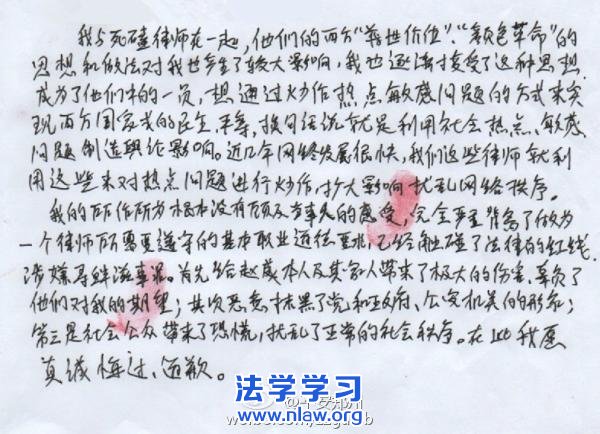 我与死磕律师在一起，他们的西方“普世价值”、“颜色革命”的
思想和做法对我也产生了较大影响，我也逐渐接受了这种思想
成为了他们中的一员，想通过炒作热点敏感问题的方式来实
现西方国家式的民主、平等，换句话说就是利用社会热点、敏感
问题制造舆论影响。近几年网络发展很快，我们这些律师就利
用这些来对热点问题进行炒作，扩大影响扰乱网络秩序。
我的所作所为根本没有顾及当事人的感受，完全严重背离了做为
一个律师所需要遵守的基本职业道德要求，已经触碰了法律的红线，
涉嫌寻衅滋事罪。首先给赵威本人及其家人带来了极大的伤害，辜负了
他们对我的期望；其次恶意抹黑了党和政府、公安机关的形象；
第三是社会公众带来了恐慌，扰乱了正常的社会秩序。在此我愿
真诚悔过、道歉。
法学学习
www.nlaw.org